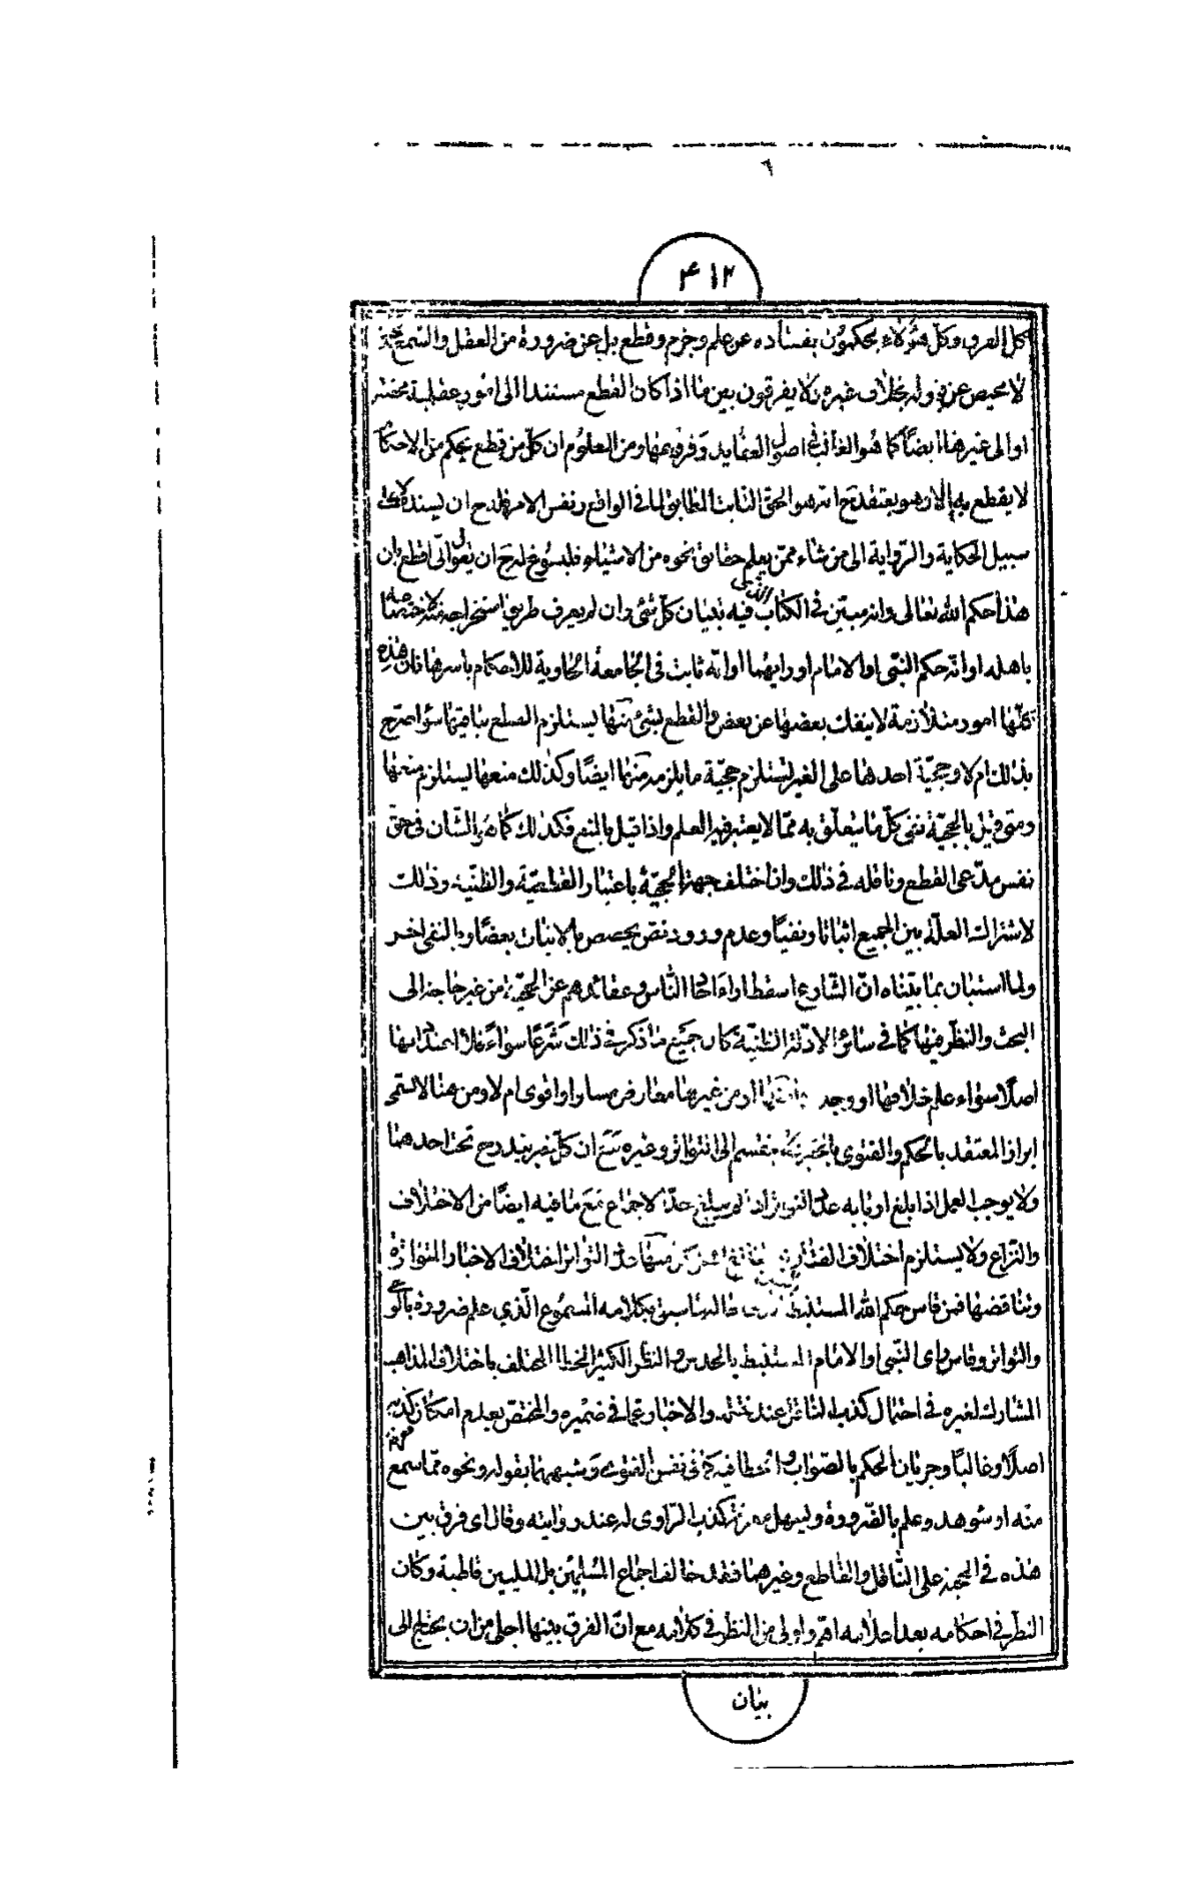 ٦
۴۱۲
كل الفرق وكل هؤلاء يحكمون بفساده عن علم وجزم وقطع بل عن ضرورة من العقل والسمع بحيث
لا محيص عن قوله بخلاف غيره ولا يفرقون بين ما اذا كان القطع مستندا الى امور عقلية محضة
او الى غيرها ايضا كما هو الغالب في اصول العقايد وفروعها ومن المعلوم ان كل من قطع بحكم من الاحكام
لا يقطع به الا وهو يعتقد ح انه هو الحق الثابت المطابق لما في الواقع ونفس الامر فله ح ان يسنده لا على
سبيل الحكاية والرواية الى من شاء ممن يعلم حقايق نحوه من الاشياء فليسوغ له ح ان يقول انى اقطع بان
هذا حكم الله تعالى وانه مبين في الكتاب الذى فيه تبيان كل شئ وان لم يعرف طريق استخراجه منه لاختصاصه
باهله او انه حكم النبى او الامام او رايهما او انه ثابت في الجامعة الحاوية للاحكام باسرها فان هذه
كلها امور متلازمة لا ينفك بعضها عن بعض والقطع بشئ منها يستلزم القطع بباقيها سواء صرح
بذلك ام لا وحجية احدها على الغير تستلزم حجية ما يلزمه منها ايضا وكذلك منعها يستلزم منعها
ومتى قيل بالحجية ففى كل ما يتعلق به مما لا يعتبر فيه العلم واذا قيل بالمنع فكذلك كما هو الشان في حق
نفس مدعى القطع وناقله في ذلك وان اختلف جهة الحجية باعتبار القطعية والظنية وذلك
لاشتراك العلة بين الجميع اثباتا ونفيا وعدم ورود نص يخصص بالاثبات بعضا وبالنفى اخر
ولما استبان بما بيناه ان الشارع اسقط اراء احاد الناس وعقائدهم عن الحجية من غير حاجة الى
البحث والنظر فيها كما في سائر الادلة الظنية كان جميع ما ذكر في ذلك شرعا سواء فلا اعتداد بها
اصلا سواء علم خلافها او وجد او من غيرها معارض مساو او اقوى ام لا ومن هنا لا يستمى
ابراز المعتقد بالحكم والفتوى بالخبر ينقسم الى المتواتر وغيره مع ان كل خبر يندرج تحت احدهما
ولا يوجب العمل اذا بلغ اربابه على التواتر اذا لم يبلغ حد الاجماع مع ما فيه ايضا من الاختلاف
والنزاع ولا يستلزم اختلاف منها حد التواتر اختلاف الاخبار المتواترة
وتناقضها فمن قاس حكم الله المستنبط بكلامه المسموع الذى علم ضرورة بالوحى
والتواتر وقاس راى النبى او الامام المستنبط بالحدس والنظر الكثير الخطا المختلف باختلاف المذاهب
المشارك لغيره في احتمال كذب الناقل عند نقله والاخبار عما في ضميره والمختص بعدم امكان كذبه
اصلا او غالبا وجريان الحكم بالصواب والخطا فيه كما في نفس الفتوى وشبههما بقوله ونحوه مما سمع منه
منه او شوهد وعلم بالضرورة كذب الراوى له عند روايته وقال اى فرق بين
هذه في الحجية على الناقل والقاطع وغيرهما فقد خالف اجماع المسلمين بل المليين قاطبة وكان
النظر في احكامه بعد اهم واولى من النظر في كلامه مع ان الفرق بينها اجلى من ان يحتاج الى
بيان